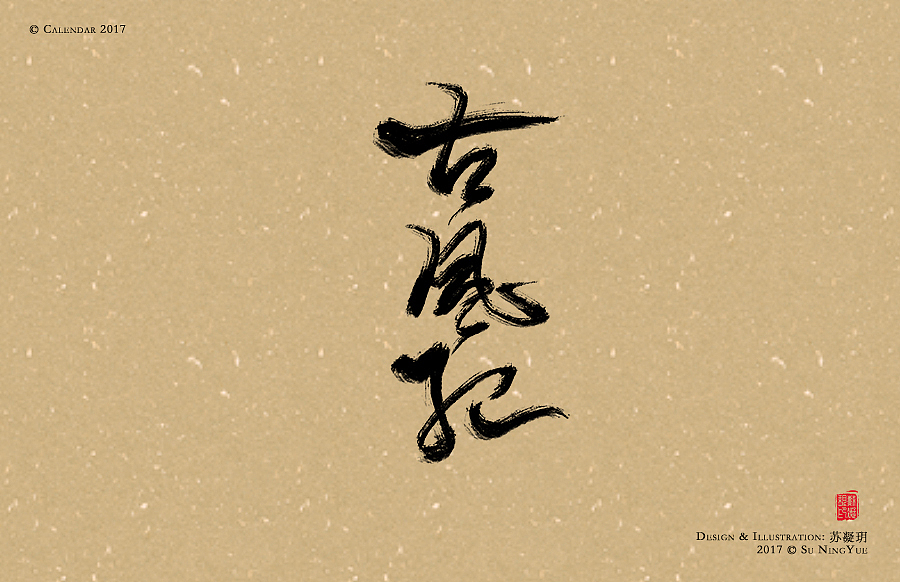 © CALENDAR 2017
古風紀
DESIGN & ILLUSTRATION: 苏凝玥
2017 © SU NINGYUE